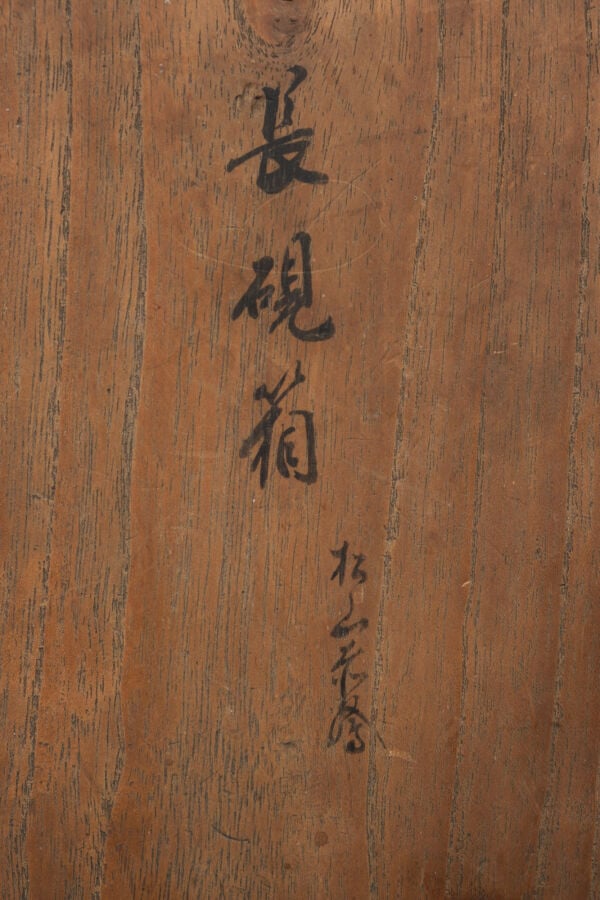 長硯箱
松山